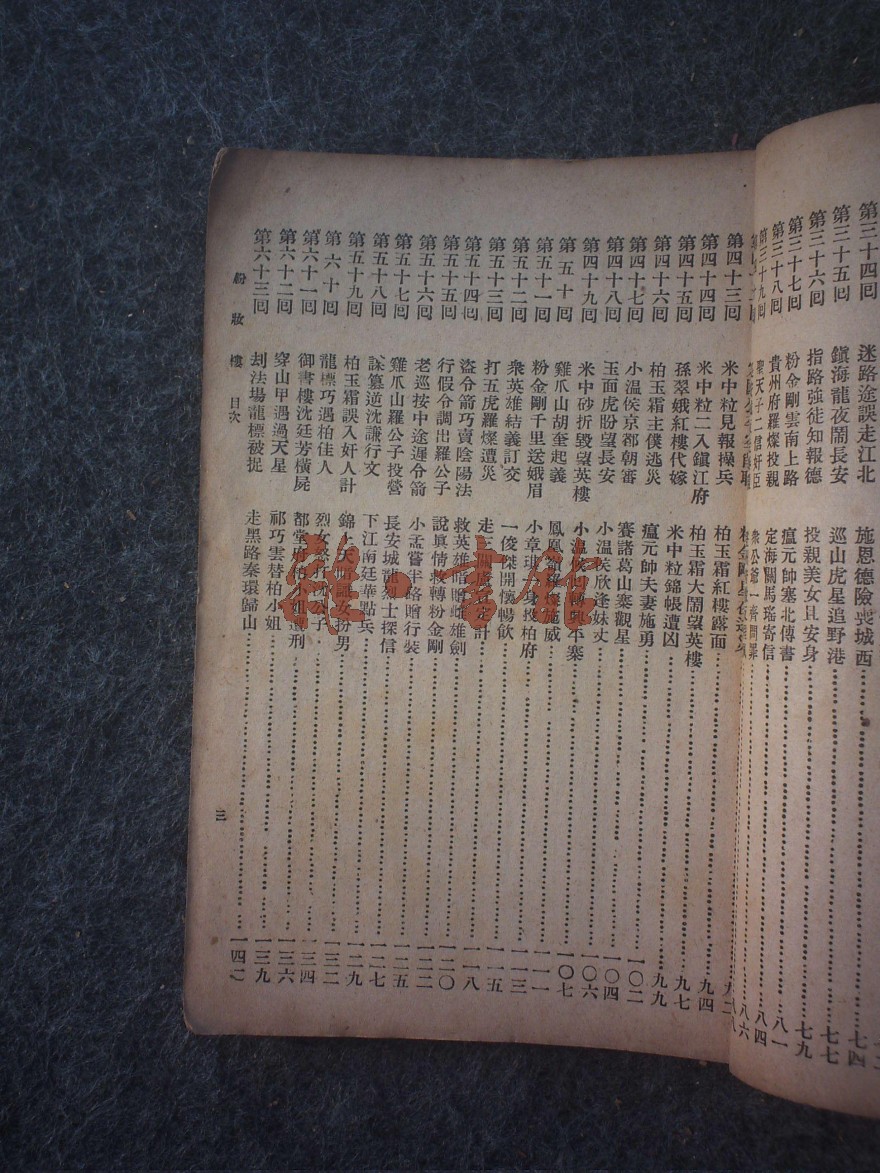 第三十四回 迷路途誤走江北 施恩德險喪城西 七四
第三十五回 鎮海龍夜鬧長安 巡山虎星追野港 七七
第三十六回 指路強徒知報德 投親美女且安身 七九
第三十七回 粉金剛雲南上路 瘟元帥塞北傳書 八一
第三十八回 貴州府羅燦投親 定海關馬瑤寄信 八四
第三十九回 聖天子二信奸臣 衆公爺一齊問罪 八六
第四十三回 米中粒見報操兵 柏玉霜紅樓露面
第四十四回 米中粒二入鎮江府 柏玉霜大鬧望英樓 九四
第四十五回 孫翠娥紅樓代嫁 米中粒錦帳遭凶 九七
第四十六回 柏玉霜主僕逃災 瘟元帥夫妻施勇 九九
第四十七回 小温侯京都朝審 賽諸葛山寨觀星 一〇二
第四十八回 玉面虎盼望長安 小温侯欣逢妹丈 一〇四
第四十九回 米中砂拆毀望英樓 小温侯 興本寨 一〇六
第五十回 雞爪山胡奎起義 鳳凰嶺羅燦施威 一〇七
第五十一回 粉金剛千里送娥眉 小章琪 身投柏府 一一一
第五十二回 衆英雄結義訂交 一俊傑開懷暢飲 一一三
第五十三回 打五虎羅燦遭災 走三關盧 定計 一一五
第五十四回 盜令箭巧賣陰陽法 救英雄暗贈雌雄劍 一一八
第五十五回 行假令調出羅公子 說真情救轉粉金剛 一二〇
第五十六回 老巡按中途遲令箭 小孟嘗半路贈行裝 一二二
第五十七回 雞爪山羅公子投營 長安城龍烈士探信 一二五
第五十八回 謀篡逆沈謙行文 下江南廷華點兵 一二七
第五十九回 柏玉霜誤入奸人計 錦上天 識女扮男 一二九
第六十回 龍標巧遇柏佳人 烈女怒打沈公子 一三二
第六十一回 御書樓沈廷芳橫屍 都堂府柏小姐遭刑 一三四
第六十二回 穿山甲遇過天星 祁巧雲替柏小姐 一三六
第六十三回 刦法場龍標被捉 走黑路秦環歸山 一三九
一四二
粉妝樓 目次 三